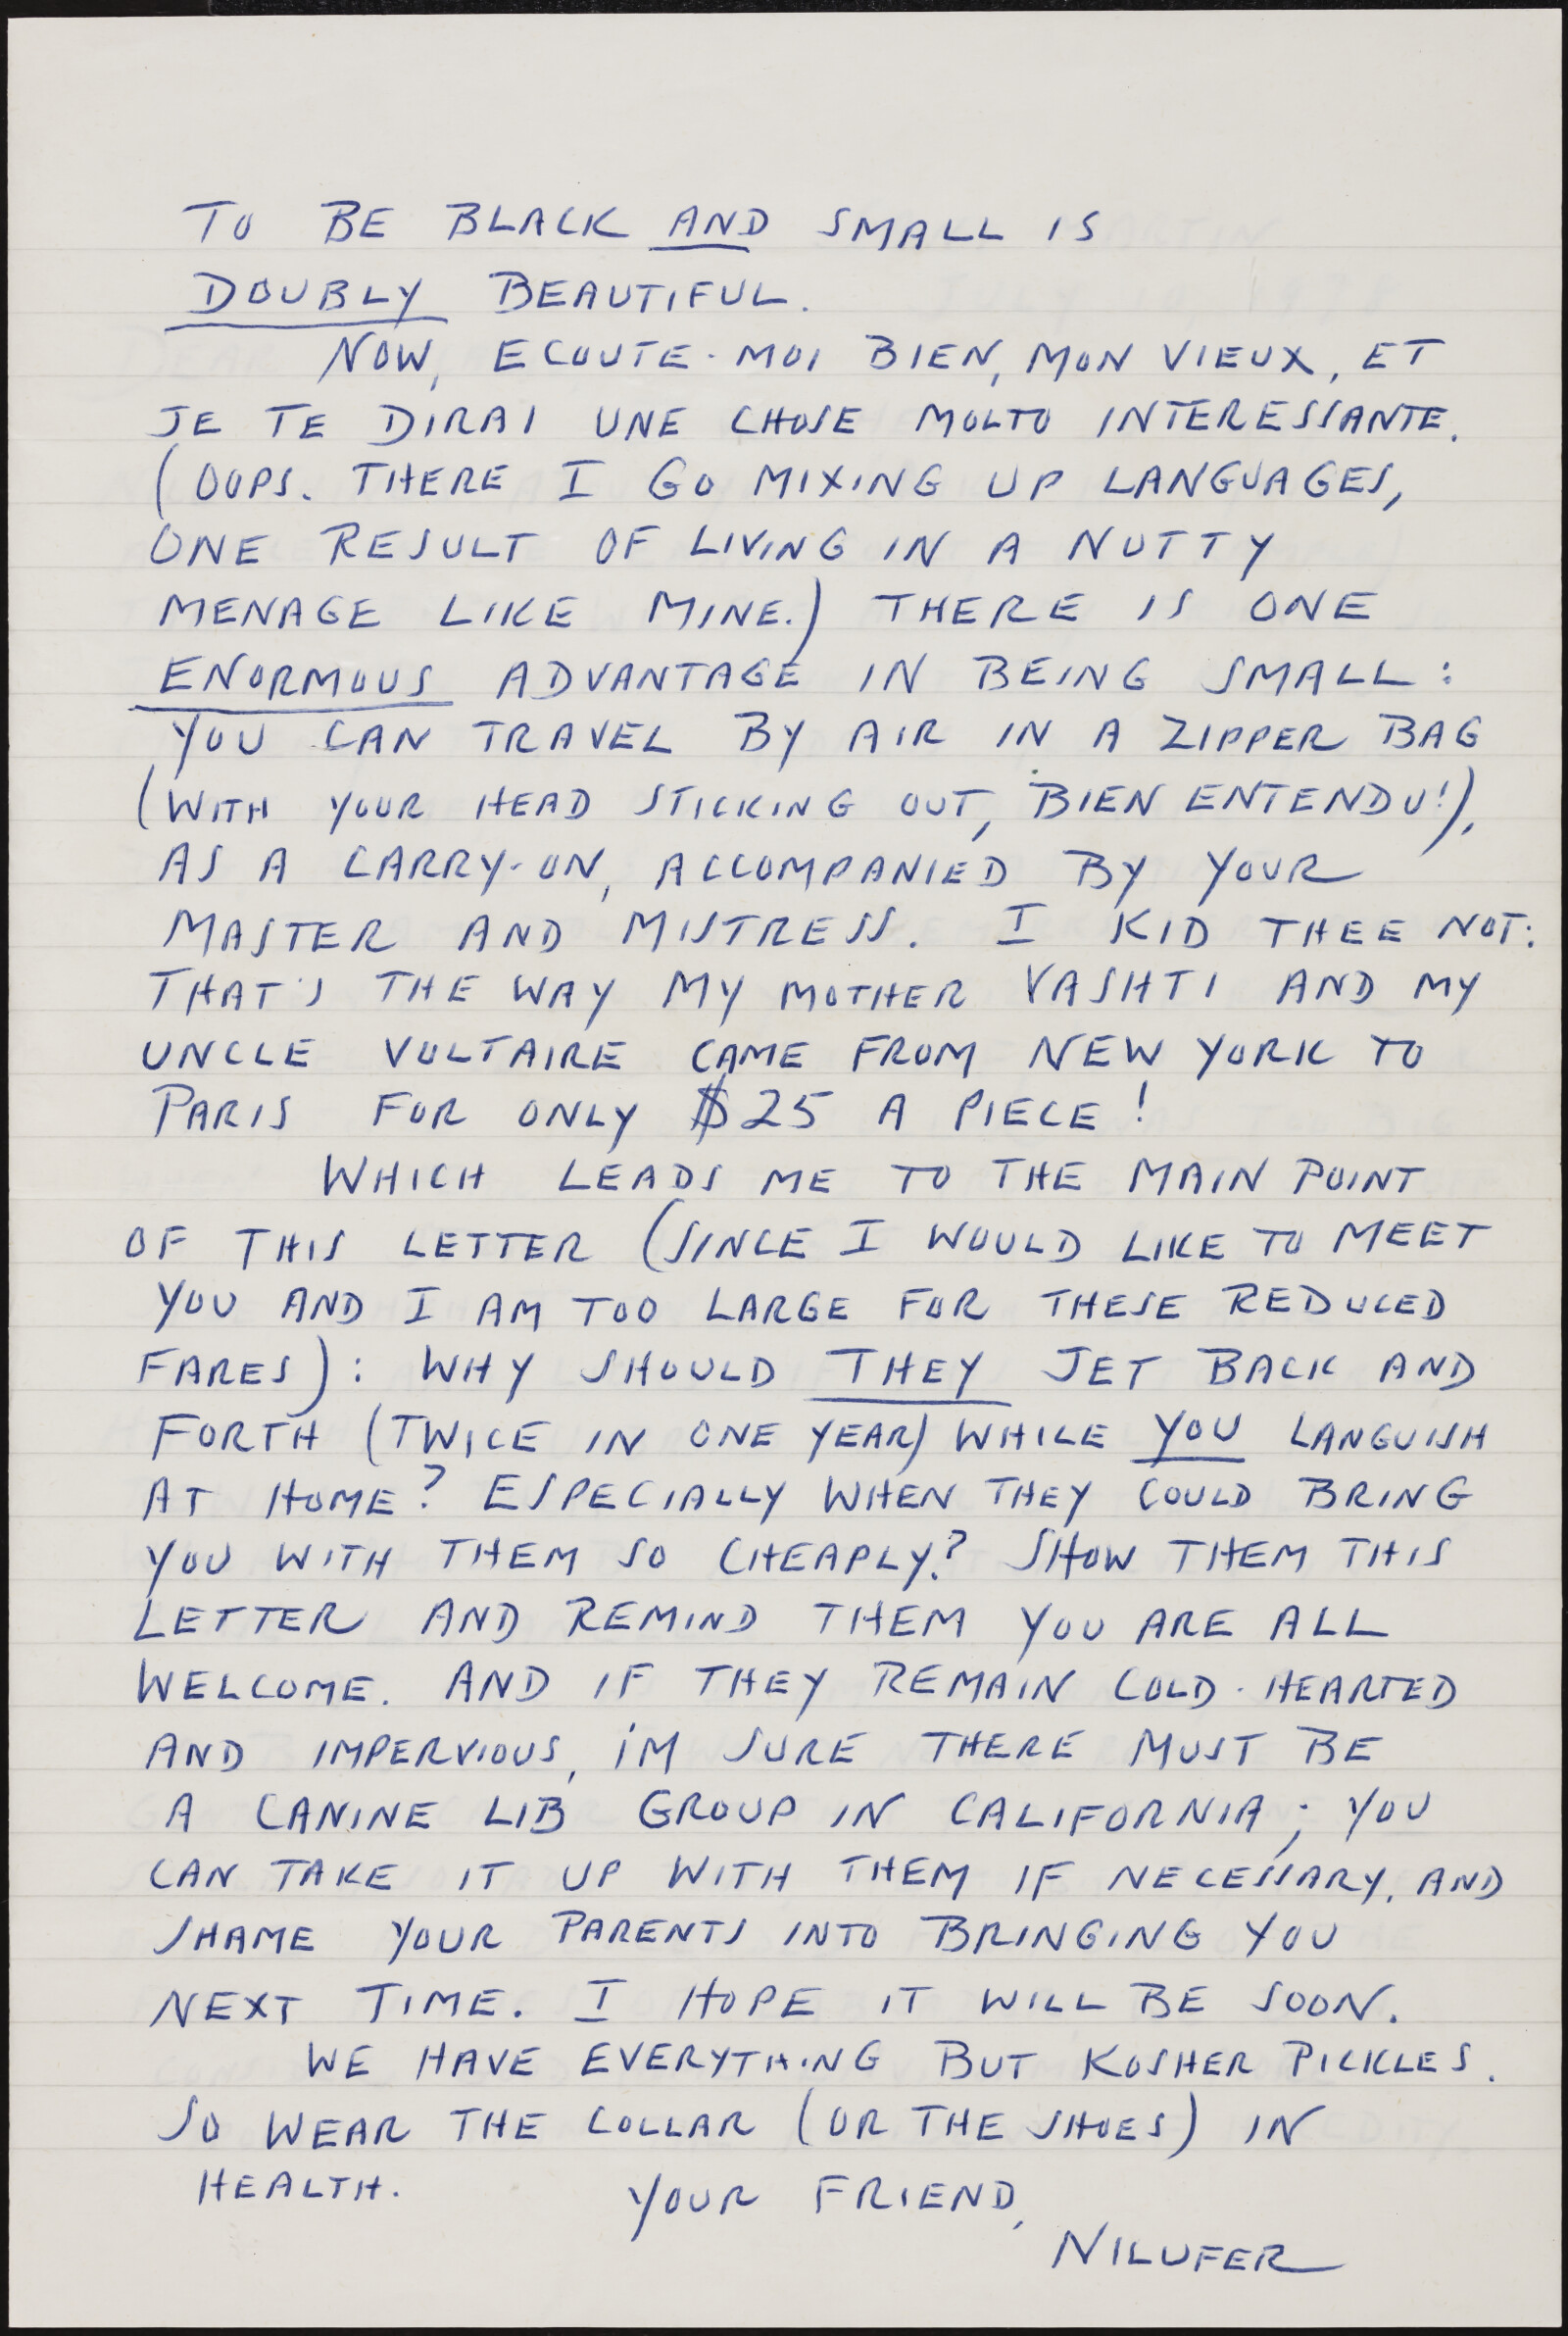 TO BE BLACK AND SMALL IS
DOUBLY BEAUTIFUL.
NOW, ECOUTE-MOI BIEN, MON VIEUX, ET
JE TE DIRAI UNE CHOSE MOLTO INTERESSANTE.
(OOPS. THERE I GO MIXING UP LANGUAGES,
ONE RESULT OF LIVING IN A NUTTY
MENAGE LIKE MINE.) THERE IS ONE
ENORMOUS ADVANTAGE IN BEING SMALL:
YOU CAN TRAVEL BY AIR IN A ZIPPER BAG
(WITH YOUR HEAD STICKING OUT, BIEN ENTENDU!),
AS A CARRY-ON, ACCOMPANIED BY YOUR
MASTER AND MISTRESS. I KID THEE NOT:
THAT'S THE WAY MY MOTHER VASHTI AND MY
UNCLE VOLTAIRE CAME FROM NEW YORK TO
PARIS FOR ONLY $25 A PIECE!
WHICH LEADS ME TO THE MAIN POINT
OF THIS LETTER (SINCE I WOULD LIKE TO MEET
YOU AND I AM TOO LARGE FOR THESE REDUCED
FARES): WHY SHOULD THEY JET BACK AND
FORTH (TWICE IN ONE YEAR) WHILE YOU LANGUISH
AT HOME? ESPECIALLY WHEN THEY COULD BRING
YOU WITH THEM SO CHEAPLY? SHOW THEM THIS
LETTER AND REMIND THEM YOU ARE ALL
WELCOME. AND IF THEY REMAIN COLD-HEARTED
AND IMPERVIOUS, I'M SURE THERE MUST BE
A CANINE LIB GROUP IN CALIFORNIA; YOU
CAN TAKE IT UP WITH THEM IF NECESSARY, AND
SHAME YOUR PARENTS INTO BRINGING YOU
NEXT TIME. I HOPE IT WILL BE SOON.
WE HAVE EVERYTHING BUT KOSHER PICKLES.
SO WEAR THE COLLAR (OR THE SHOES) IN
HEALTH. YOUR FRIEND,
NILUFER